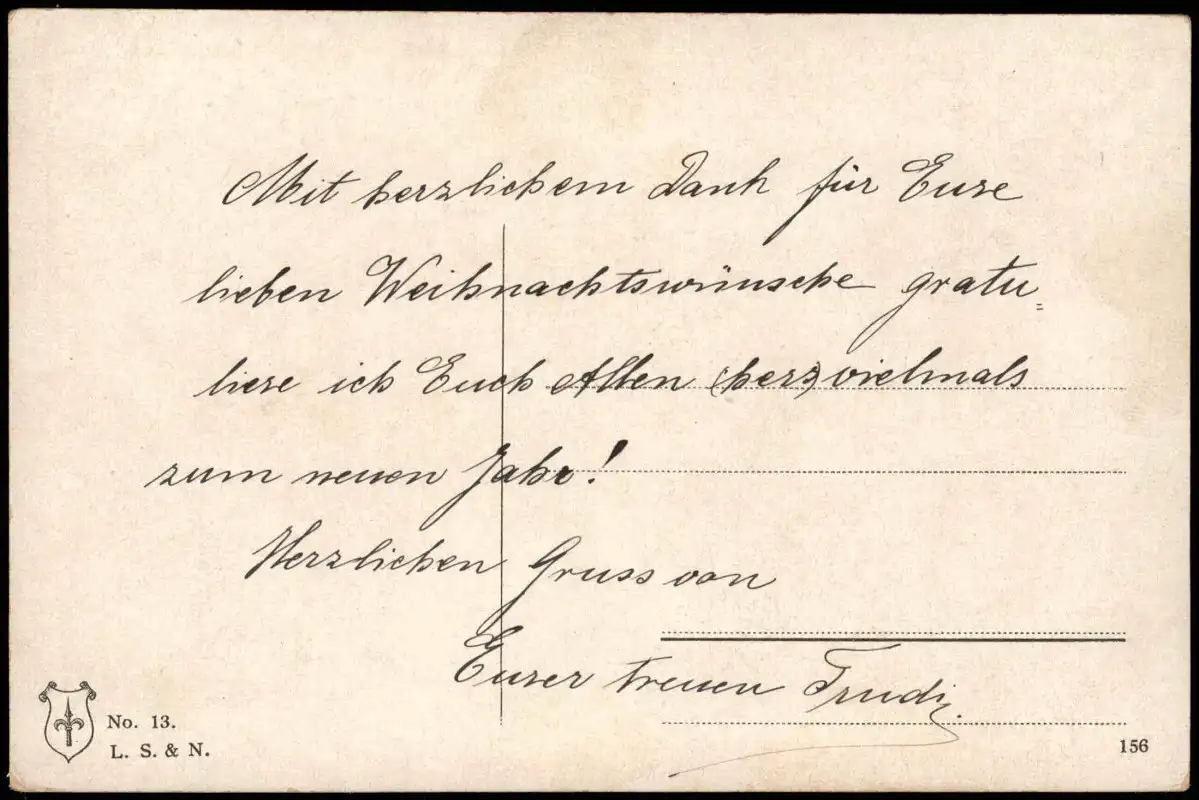 Mit herzlichem Dank für Eure
lieben Weihnachtswünsche gratu=
liere ich Euch Allen (herz) vielmals
zum neuen Jahr!
Herzlichen Gruss von
Eurer treuen Trudi.
No. 13.
L. S. & N.
156